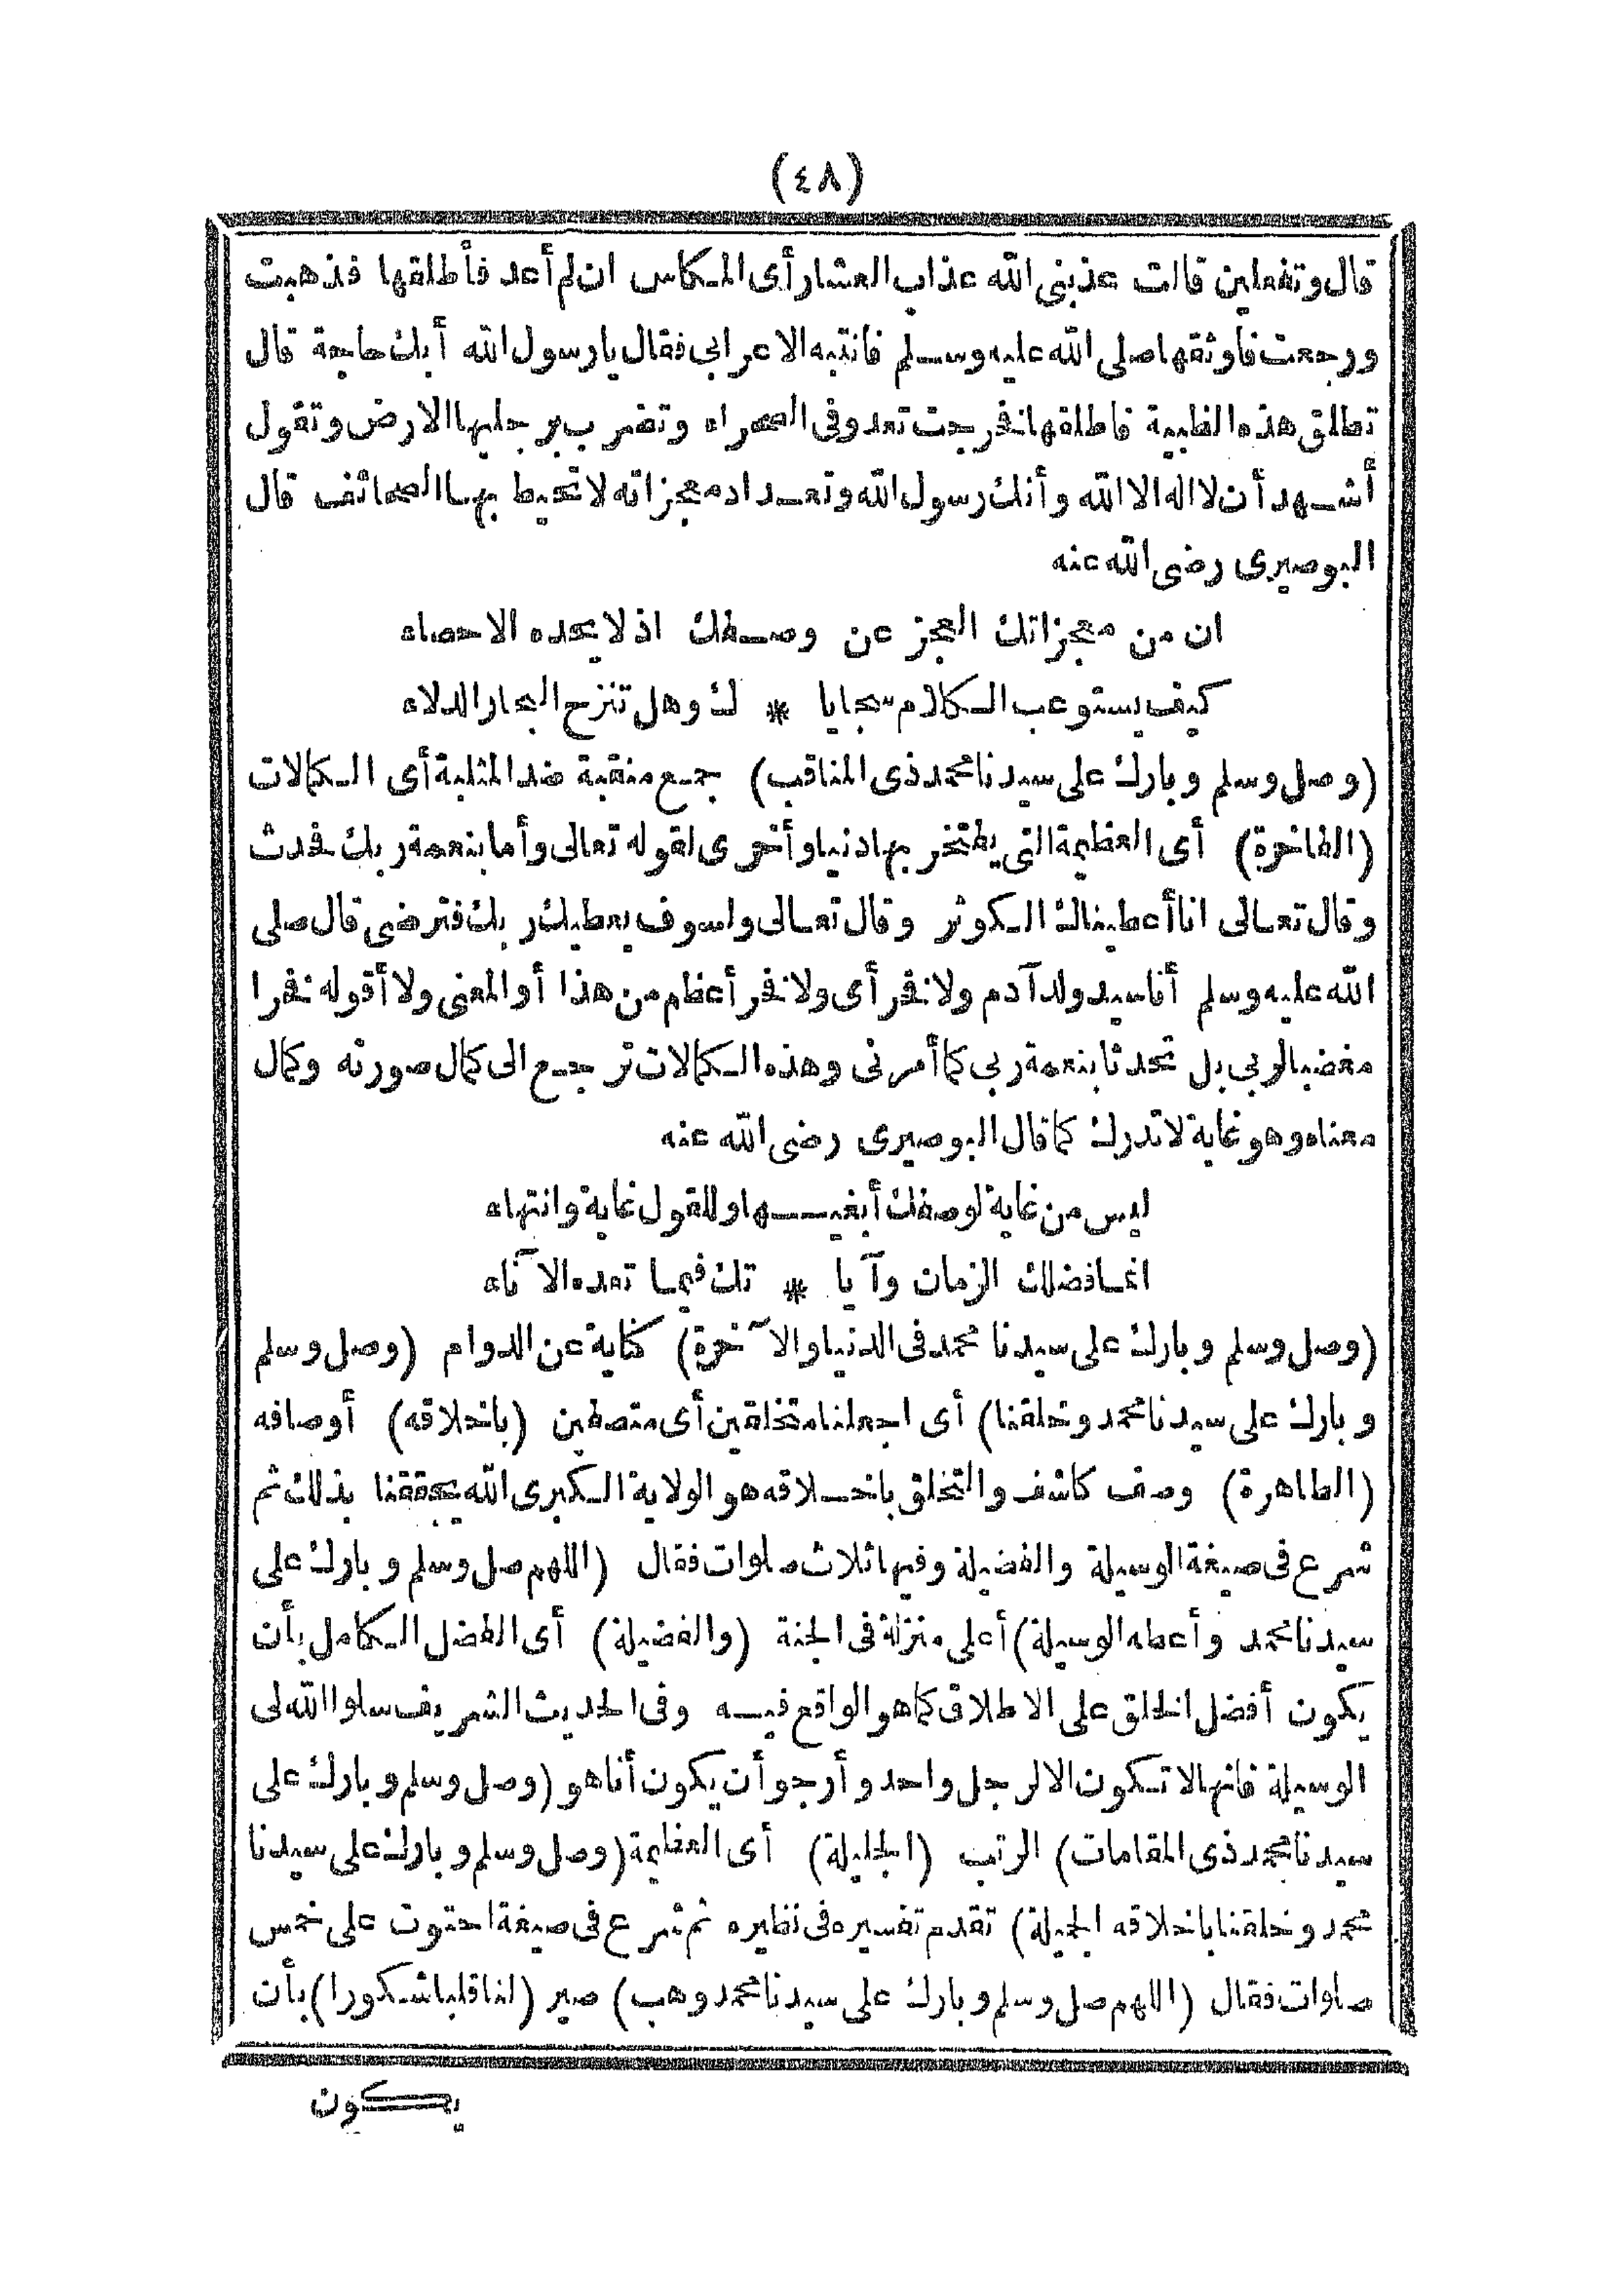 (٤٨)
قال وتفعلين قالت عذبنى الله عذاب العشار أى المكاس ان لم أعد فأطلقها فذهبت
ورجعت فاوثقها صلى الله عليه وسلم فانتبه الاعرابى فقال يارسول الله أبك حاجة قال
تطلق هذه الظبية فاطلقها فخرجت تعدو فى الصحراء وتضرب برجليها الارض وتقول
أشهد أن لا اله الا الله وأنك رسول الله وتعداد معجزاته لا تحيط بها الصحائف قال
البوصيرى رضى الله عنه
ان من معجزاتك العجز عن وصفك اذ لا يحده الاحصاء
كيف يستوعب الكلام سجايا * ك وهل تنزح البحار الدلاء
(وصل وسلم وبارك على سيدنا محمد ذى المناقب) جمع منقبة ضد المثلبة أى الكمالات
(الفاخرة) أى العظيمة التى يفتخر بها دنيا وأخرى لقوله تعالى وأما بنعمة ربك فحدث
وقال تعالى انا أعطيناك الكوثر وقال تعالى ولسوف يعطيك ربك فترضى قال صلى
الله عليه وسلم أنا سيد ولد آدم ولا فخر أى ولا فخر أعظم من هذا أو المعنى ولا أقوله فخرا
مغضبا لربى بل تحدثا بنعمة ربى كما أمرنى وهذه الكمالات ترجع الى كمال صورته وكمال
معناه وهو غاية لا تدرك كما قال البوصيرى رضى الله عنه
ليس من غاية لوصفك أبغيها وللقول غاية وانتهاء
انما فضلك الزمان وآيا * تك فيما تعده الآناء
(وصل وسلم وبارك على سيدنا محمد فى الدنيا والآخرة) كناية عن الدوام (وصل وسلم
وبارك على سيدنا محمد وخلقنا) أى اجعلنا متخلقين أى متصفين (باخلاقه) أوصافه
(الطاهرة) وصف كاشف والتخلق باخلاقه هو الولاية الكبرى الله يحققنا بذلك ثم
شرع فى صيغة الوسيلة والفضيلة وفيها ثلاث صلوات فقال (اللهم صل وسلم وبارك على
سيدنا محمد وأعطه الوسيلة) أعلى منزلة فى الجنة (والفضيلة) أى الفضل الكامل بأن
يكون أفضل الخلق على الاطلاق كما هو الواقع فيه وفى الحديث الشريف سلوا الله لى
الوسيلة فانها لا تكون الا لرجل واحد وأرجو أن يكون أنا هو (وصل وسلم وبارك على
سيدنا محمد ذى المقامات) الرتب (الجليلة) أى العظيمة (وصل وسلم وبارك على سيدنا
محمد وخلقنا باخلاقه الجميلة) تقدم تفسيره فى نظيره ثم شرع فى صيغة احتوت على خمس
صلوات فقال (اللهم صل وسلم وبارك على سيدنا محمد وهب) صير (لنا قلبا شكورا) بأن
يكون